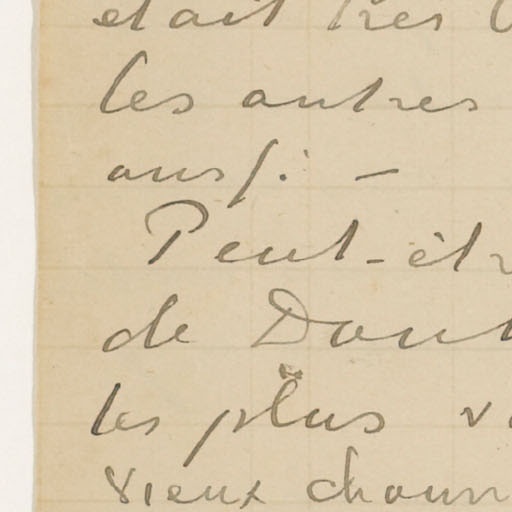 était très
les autres
aussi. —
Peut-êtr
de Dou
les plus v
vieux chaum